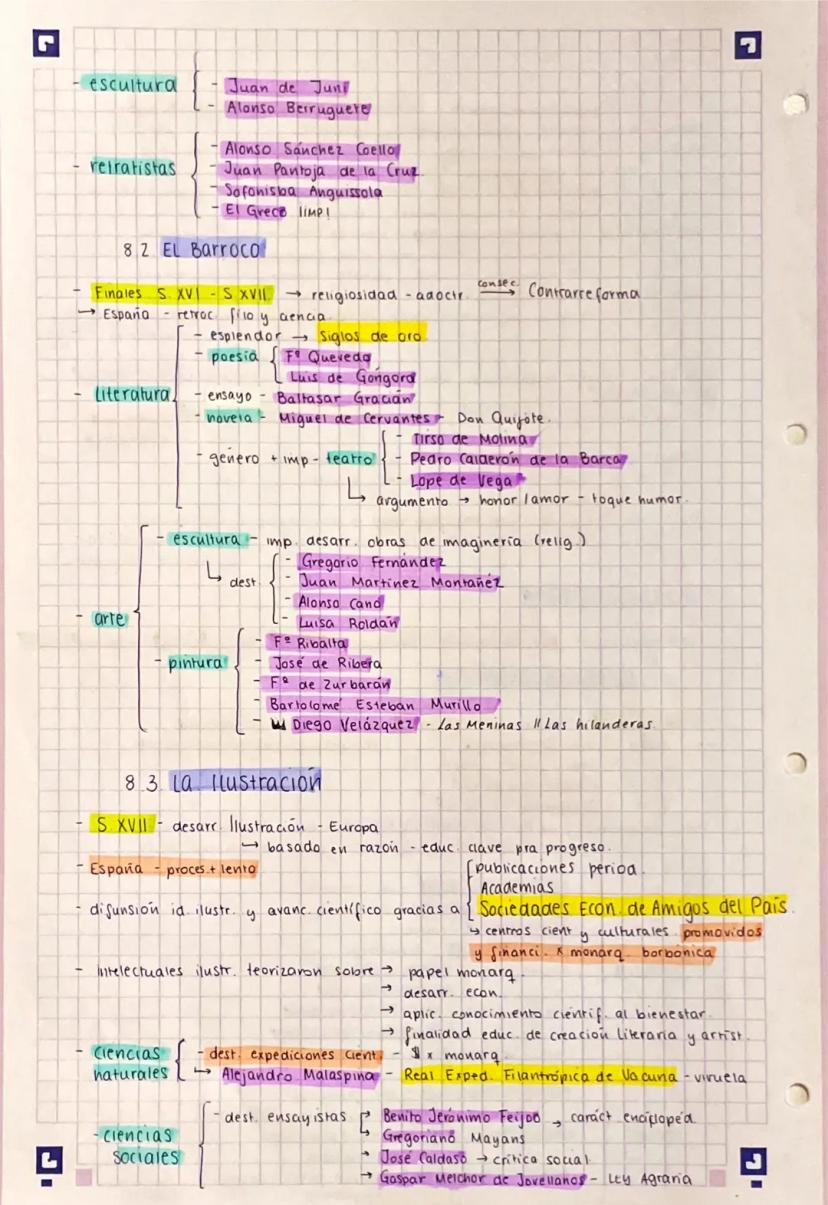 - escultura
- Juan de Juni
- Alonso Berruguete
- retratistas
- Alonso Sánchez Coello
- Juan Pantoja de la Cruz
- Sofonisba Anguissola
- El Greco !IMP!
8.2 El Barroco
- Finales S. XVI - S XVII → religiosidad - adoctr. consec. → Contrarreforma
→ España - retroc. filo y ciencia
- Literatura
- esplendor → Siglos de oro
- poesía
Fº Quevedo
Luis de Góngora
- ensayo - Baltasar Gracián
- novela - Miguel de Cervantes - Don Quijote.
- género + imp - teatro
- Tirso de Molina
- Pedro Calderón de la Barca
- Lope de Vega
↳ argumento → honor / amor - toque humor.
- arte
- escultura - imp. desarr. obras de imaginería (relig.)
↳ dest.
- Gregorio Fernández
- Juan Martínez Montañéz
- Alonso Cano
- Luisa Roldán
- pintura
- Fº Ribalta
- José de Ribera
- Fº de Zurbarán
- Bartolomé Esteban Murillo
- Diego Velázquez - Las Meninas // Las hilanderas
8.3. La Ilustración
- S. XVII - desarr. Ilustración - Europa
↳ basado en razón - educ. clave pra progreso.
- España - proces + lento
- difunsión id. ilustr. y avanc. científico gracias a
publicaciones period.
Academias
Sociedades Econ. de Amigos del País.
↳ centros cient y culturales promovidos
y financi. x monarq. borbónica
- Intelectuales ilustr. teorizaron sobre → papel monarq.
→ desarr. econ.
→ aplic. conocimiento científ. al bienestar.
→ finalidad educ. de creación literaria y artíst.
- ciencias naturales
- dest. expediciones cient. - $ x monarq.
↳ Alejandro Malaspina - Real Exped. Filantrópica de Vacuna - viruela
- ciencias sociales
- dest. ensayistas
→ Benito Jerónimo Feijoo → caráct enciloped.
→ Gregoriano Mayans
→ José Caldaso → crítica social
→ Gaspar Melchor de Jovellanos - Ley Agraria